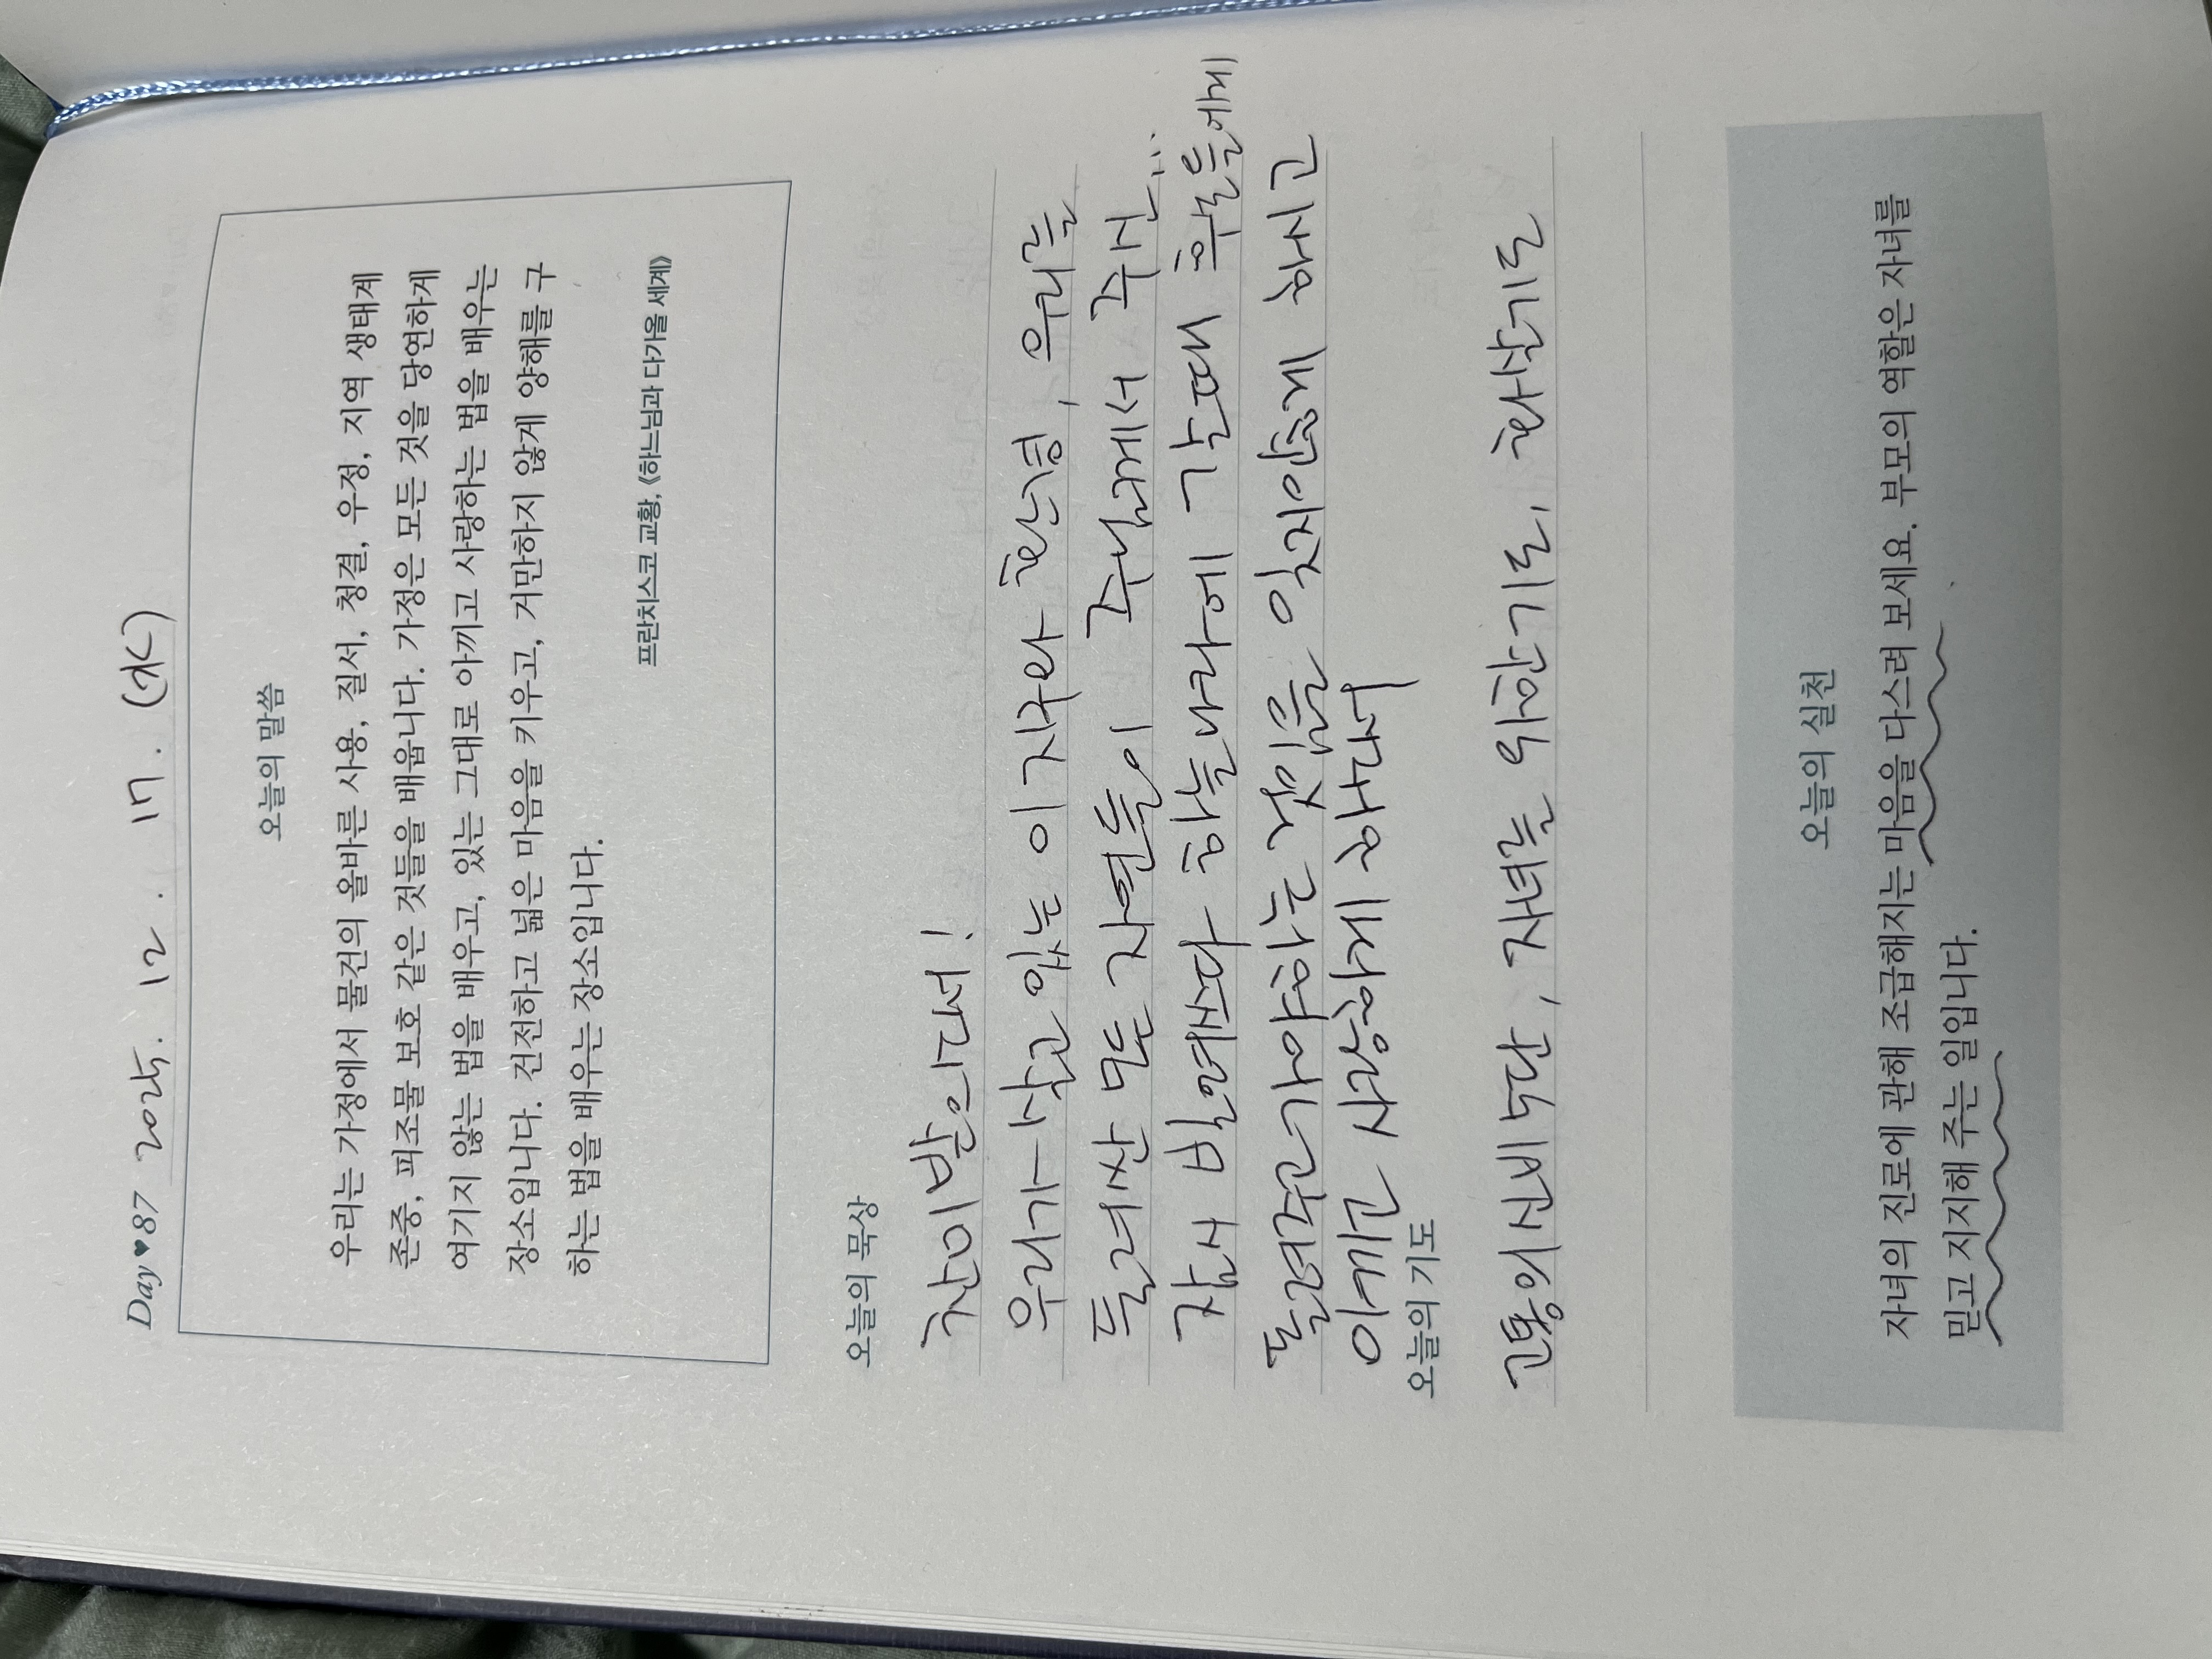 Day♥87 2025. 12. 17. (水)
오늘의 말씀
우리는 가정에서 물건의 올바른 사용, 질서, 청결, 우정, 지역 생태계
존중, 피조물 보호 같은 것들을 배웁니다. 가정은 모든 것을 당연하게
여기지 않는 법을 배우고, 있는 그대로 아끼고 사랑하는 법을 배우는
장소입니다. 건전하고 넓은 마음을 키우고, 거만하지 않게 양해를 구
하는 법을 배우는 장소입니다.
프란치스코 교황, 《하느님과 다가올 세계》
오늘의 묵상
찬미받으소서!
우리가 살고 있는 이 지구와 환경, 우리를
둘러싼 모든 자연들이 주님께서 주신...
잠시 빌려쓰다 하늘나라에 갈때 후손들에게
돌려주고가야하는 것임을 잊지않게 하시고
아끼고 사랑하게 하소서
오늘의 기도
고통의신비 5단, 자녀를 위한기도, 화살기도
오늘의 실천
자녀의 진로에 관해 조급해지는 마음을 다스려 보세요. 부모의 역할은 자녀를
믿고 지지해 주는 일입니다.